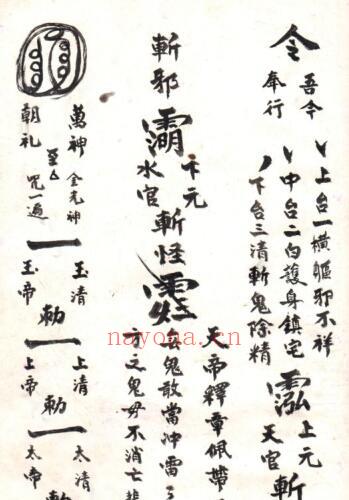 令
吾今
奉行
上台一橫驅邪不祥
中台二白護身鎮宅
下台三清斬鬼除精
上元
天官
斬
天帝釋章佩帶
去鬼敢當冲雷
之鬼毋不消亡
斬邪
下元
水官
斬怪
萬神
朝礼
金光神
咒一遍
一
玉清
玉帝
勅
一
上清
上帝
勅
一
太清
太帝
nayona.cn